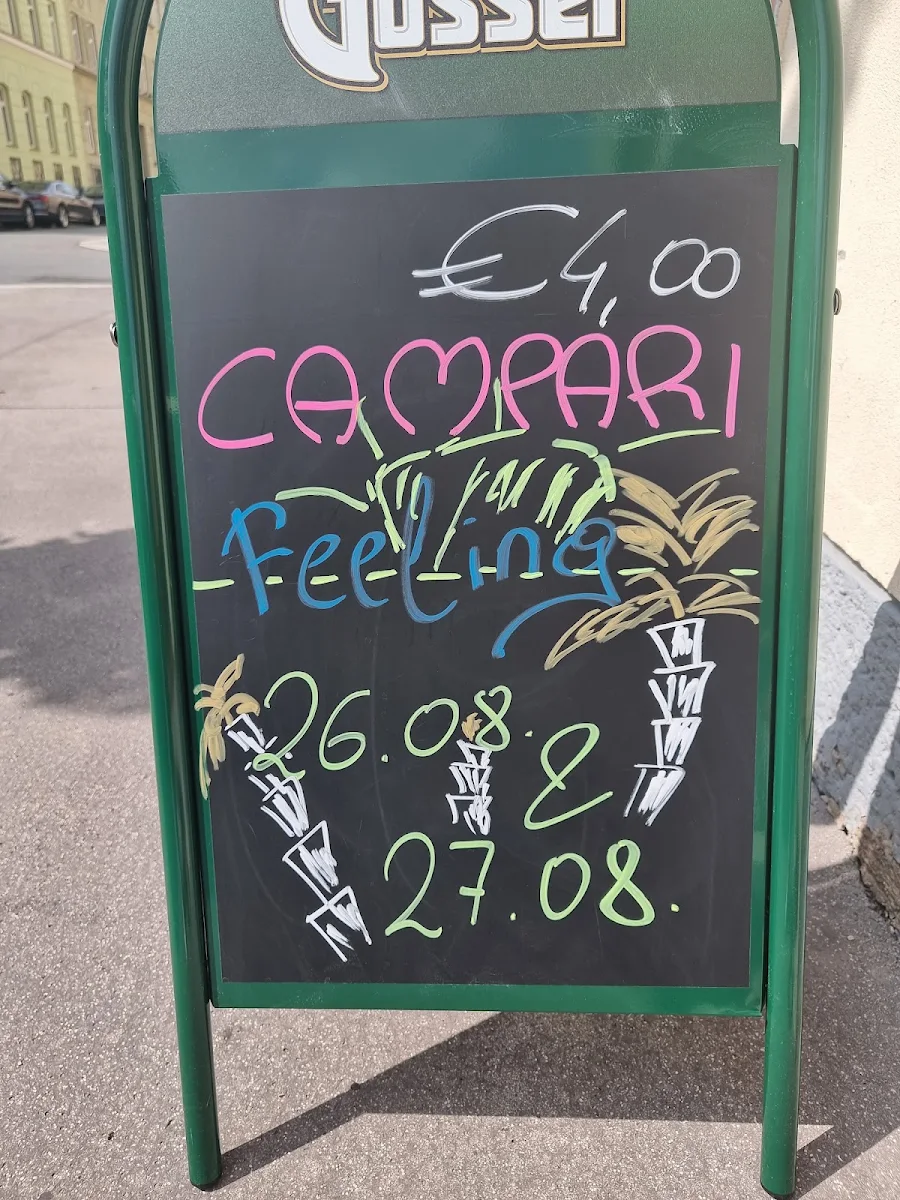 Gösser
€4,00
CAMPARI
Feeling
26.08. &
27.08.